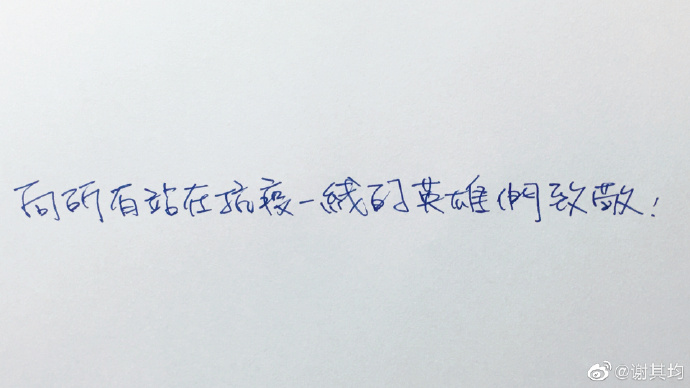 向所有站在抗疫一线的英雄們致敬！
@谢其均